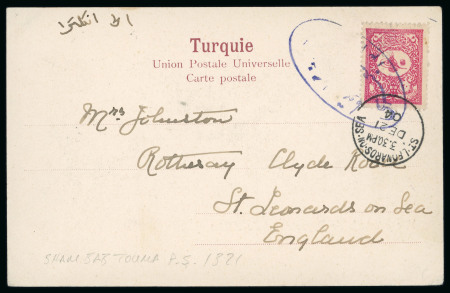 الى انكلترا
Turquie
Union Postale Universelle
Carte postale
Mrs Johnston
Rothesay Clyde Road
St. Leonards on Sea
England
ST. LEONARDS-ON-SEA
3.30 PM
DE 21